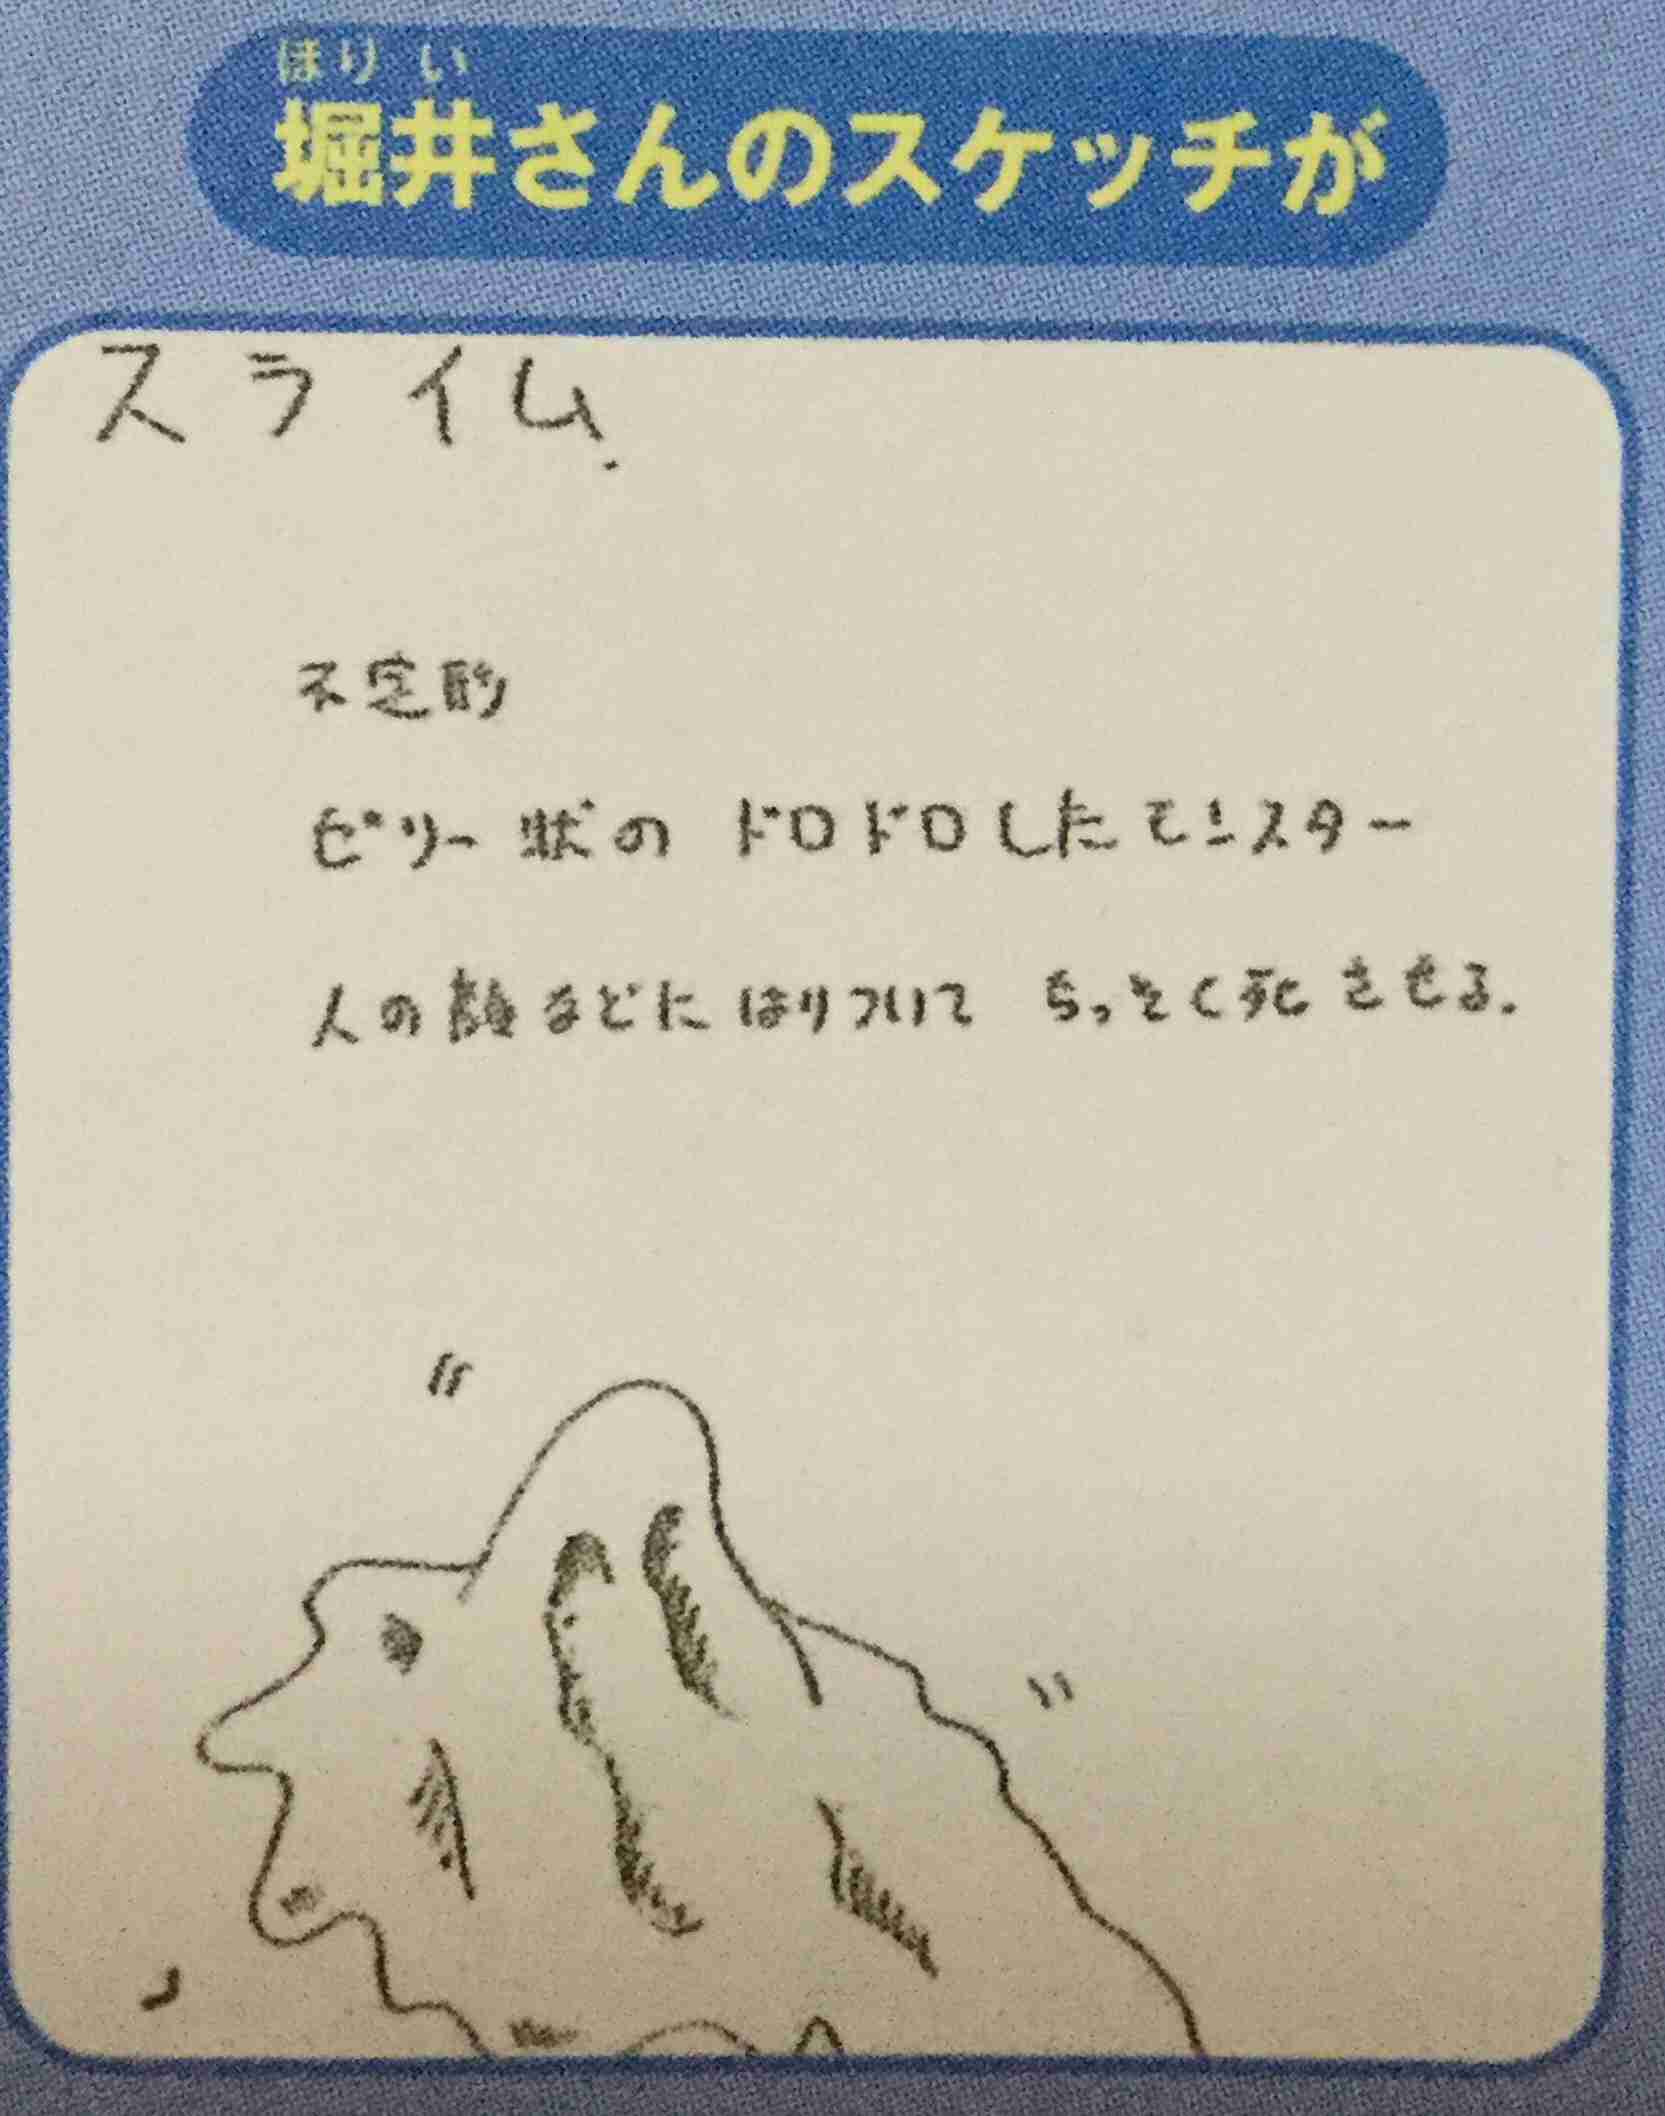 ほり い
堀井さんのスケッチが
スライム.
不定形
ゼリー状の ドロドロしたモンスター
人の顔などに はりついて ちっそく死させる.